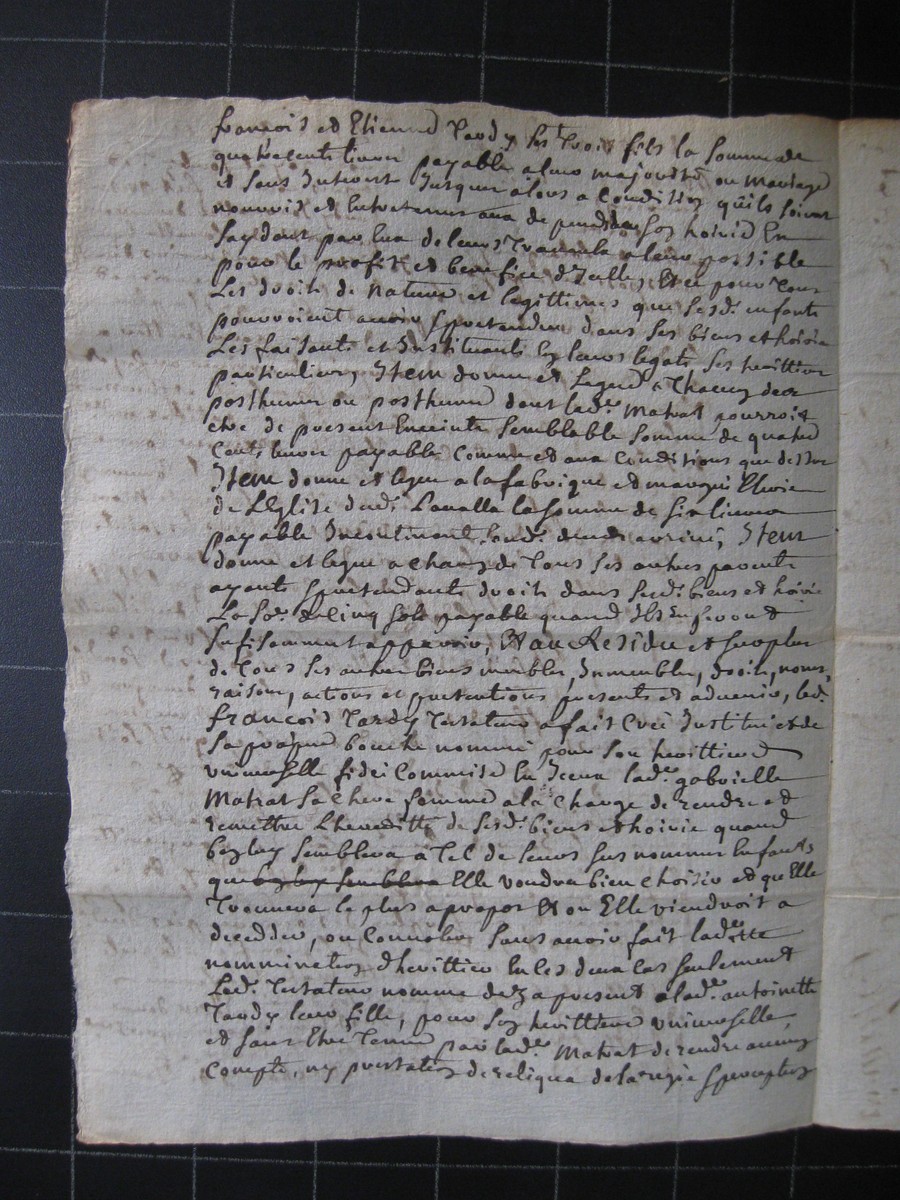 francois et Etienne Tardy ses trois fils la somme de
quatre cents livres payable a leur majorité ou mariage
et sans Interest Jusques alors a Condition qu'ils soient
nourris et Entretenus aux depends de son hoirie En
Saydant par eux de leurs travaile a leur possible
pour le proffit et benefice d'Icelle, et ce pour tous
Les droits de nature et legittimes que sesd. enfants
pourroient avoir & pretendre dans ses biens et hoirie
Les faisants et Instituants by leurs legats ses heritiers
particuliers, Item donne et Legue a Chacun des
posthumes ou posthume dont lad.e Matrat pourroit
etre de present Enceinte semblable somme de quatre
Cents livres payable comme et aux Conditions que dessus
Item donne et legue a la fabrique et marguillerie
de L'Eglise dud. Lavalla la somme de six livres
payable Incontinent sond. deceds arrivé, Item
donne et legue a chacun de tous ses autres parents
ayants & pretendants droits dans sesd. biens et hoirie
La So.e de Cinq sols payable quand Ils En seront
sufisamment apparoir, Et au Residu et surplus
de tous ses autres biens meubles, Immeubles, droits, noms,
raisons, actions et pretentions presents et advenir, led.
francois Tardy Testateur a fait Creé Institué et de
sa propre bouche nommé pour son heritiere
universelle fidei Commise En Iceux lad.e gabrielle
Matrat sa Chere femme a la Charge de rendre et
remettre L'heredité de sesd. biens et hoirie quand
bon luy semblera a Tel de leurs sus nommes Enfants
que bon luy semblera Elle voudra bien choisir et qu'Elle
Trouvera le plus a propos Et ou Elle viendroit a
deceder, ou Convoler sans avoir fait ladette
nomination d'heritier En les deux Cas seulement
Led. Testateur nomme dez a present a lad.e antoinette
Tardy leur fille, pour son heritiere universelle
et sans Etre Tenue par lad.e Matrat de rendre aucun
Compte, ny prestation de reliqua de la regie & perception